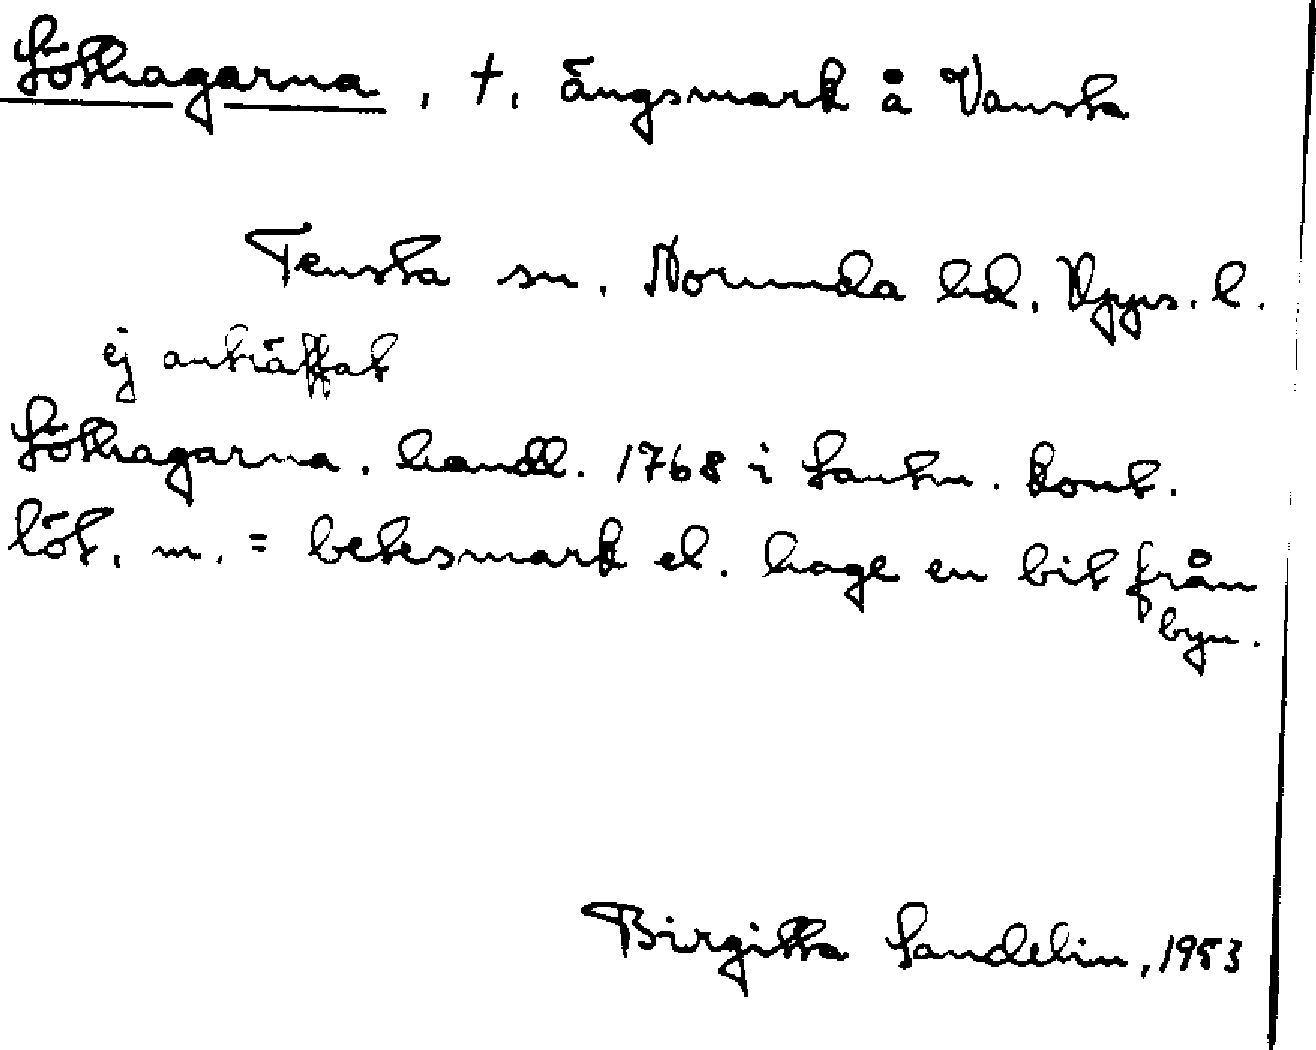 Löthagarna, †, ängsmark å Vansta
Tensta sn. Norunda hd. Upps. l.
ej anträffat
Löthagarna. handl. 1768 i Lantm. kont.
löt, m. = betesmark el. hage en bit från
byn.
Birgitta Sandelin, 1953